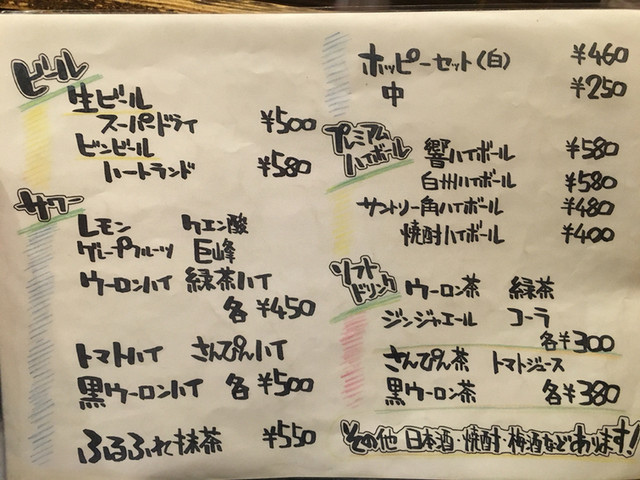 ビール
生ビール
スーパードライ ¥500
ビンビール
ハートランド ¥580
サワー
レモン クエン酸
グレープフルーツ 巨峰
ウーロンハイ 緑茶ハイ
各¥450
トマトハイ さんぴんハイ
黒ウーロンハイ 各¥500
ふるふれ抹茶 ¥550
ホッピーセット(白) ¥460
中 ¥250
プレミアム
ハイボール
響ハイボール ¥580
白州ハイボール ¥580
サントリー角ハイボール ¥480
焼酎ハイボール ¥400
ソフト
ドリンク
ウーロン茶 緑茶
ジンジャエール コーラ
各¥300
さんぴん茶 トマトジュース
黒ウーロン茶 各¥380
その他 日本酒・焼酎・梅酒などあります!